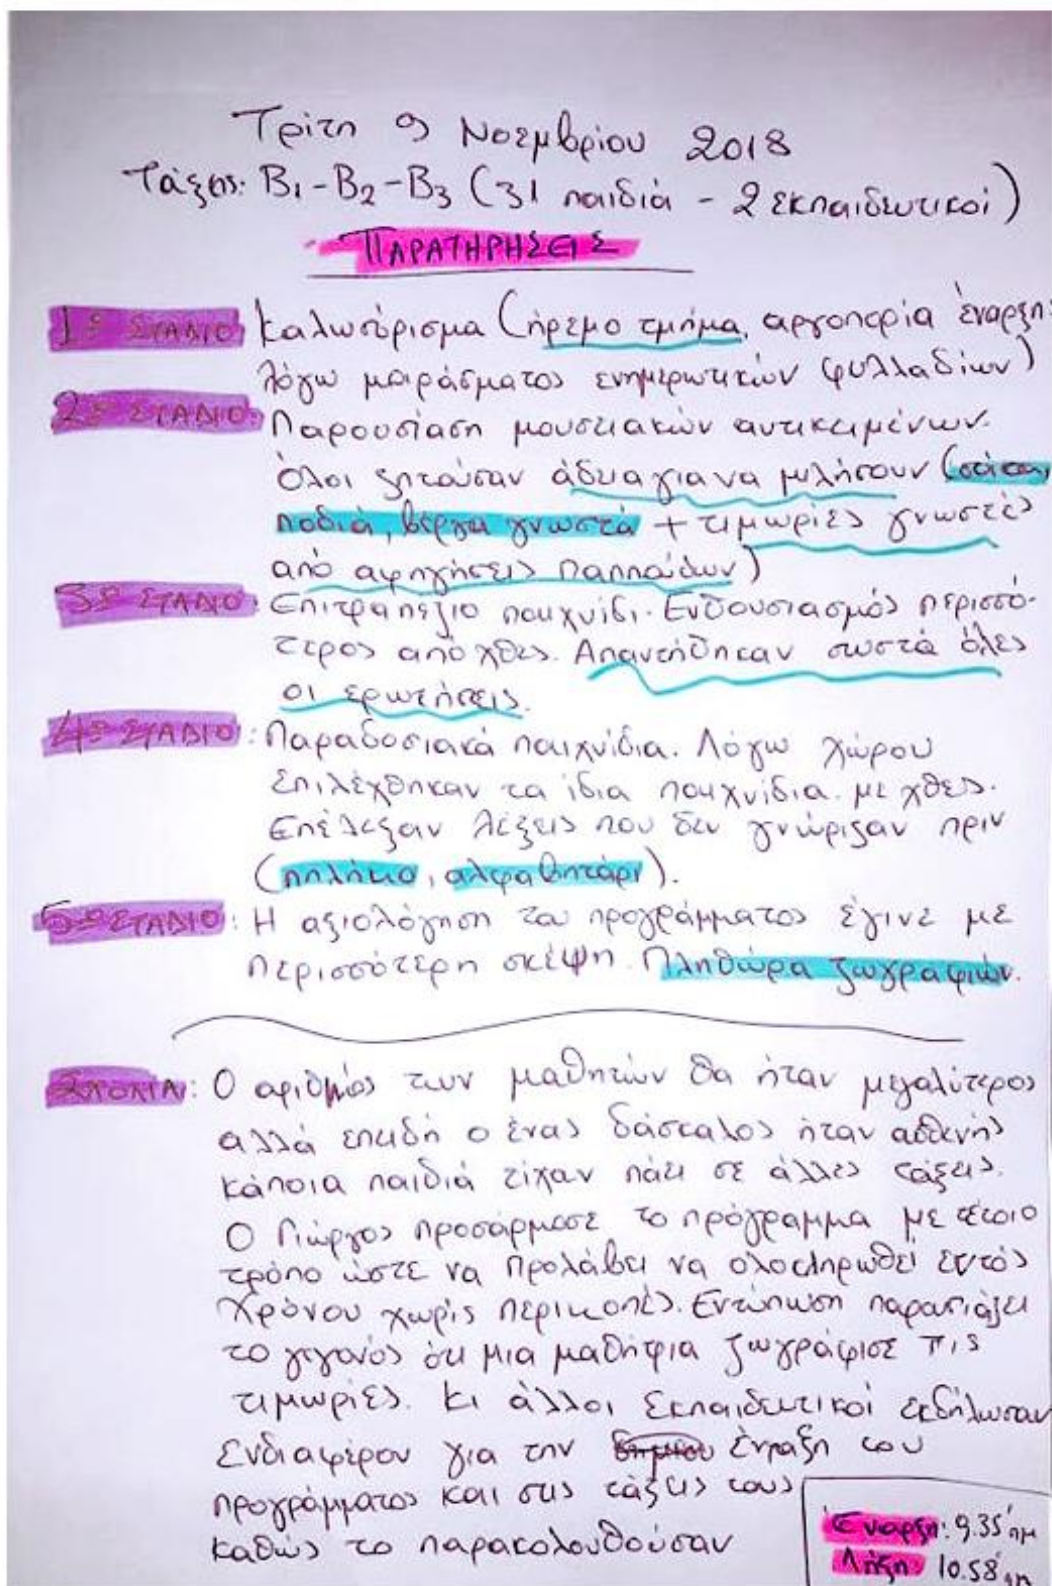 Τρίτη 9 Νοεμβρίου 2018
Τάξεις: Β1-Β2-Β3 (31 παιδιά - 2 εκπαιδευτικοί)
ΠΑΡΑΤΗΡΗΣΕΙΣ
1ο ΣΤΑΔΙΟ: Καλωσόρισμα (ήρεμο τμήμα, αργοπορία έναρξη:
λόγω μοιράσματος ενημερωτικών φυλλαδίων)
2ο ΣΤΑΔΙΟ: Παρουσίαση μουσειακών αντικειμένων.
Όλοι ζητούσαν άδεια για να μιλήσουν (σάκα,
ποδιά, βέργα γνωστά + τιμωρίες γνωστές
από αφηγήσεις παππούδων)
3ο ΣΤΑΔΙΟ: Επιτραπέζιο παιχνίδι. Ενθουσιασμός περισσό-
τερος από χθες. Απαντήθηκαν σωστά όλες
οι ερωτήσεις.
4ο ΣΤΑΔΙΟ: Παραδοσιακά παιχνίδια. Λόγω χώρου
επιλέχθηκαν τα ίδια παιχνίδια με χθες.
Επέλεξαν λέξεις που δεν γνώριζαν πριν
(πηλήκιο, αλφαβητάρι).
5ο ΣΤΑΔΙΟ: Η αξιολόγηση του προγράμματος έγινε με
περισσότερη σκέψη. Πληθώρα ζωγραφιών.
ΣΧΟΛΙΑ: Ο αριθμός των μαθητών θα ήταν μεγαλύτερος
αλλά επειδή ο ένας δάσκαλος ήταν ασθενής
κάποια παιδιά είχαν πάει σε άλλες τάξεις.
Ο Γιώργος προσάρμοσε το πρόγραμμα με τέτοιο
τρόπο ώστε να προλάβει να ολοκληρωθεί εντός
χρόνου χωρίς περικοπές. Εντύπωση παρουσιάζει
το γεγονός ότι μια μαθήτρια ζωγράφισε τις
τιμωρίες. Κι άλλοι εκπαιδευτικοί εκδήλωσαν
ενδιαφέρον για την ένταξη του
προγράμματος και στις τάξεις τους
καθώς το παρακολουθούσαν
Έναρξη: 9.35΄ πμ
Λήξη: 10.58΄ πμ